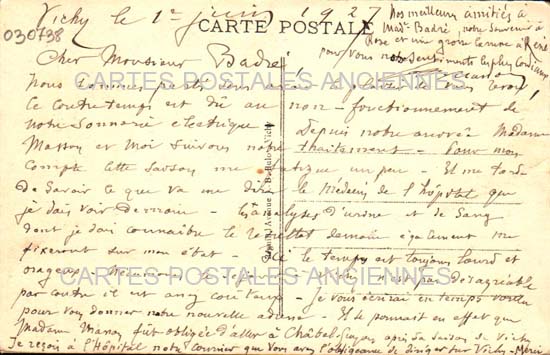 Vichy le 1er juin 1927
030738
CARTE POSTALE
Nos meilleurs amitiés à
Made Badré, notre souvenir à
Rose et une grosse à René
pour vous nos sentiments les plus
Cher Monsieur Badré
CARTES POSTALES ANCIENNES
Nous sommes partis sans avoir le plaisir de vous revoir
le contretemps est dû au non-fonctionnement de
notre sonnerie électrique
Depuis notre arrivée Madame
Masson et moi suivons notre traitement - Pour mon
compte cette saison me fatigue un peu - Et me tarde
de savoir ce que va me dire le Médecin de l'hôpital que
je dois voir demain - les analyses d'urine et de sang
dont je dois connaître le résultat demain également me
fixeront sur mon état - Ici le temps est toujours lourd et
orageux - Néanmoins le n'est pas désagréable
par contre il est assez coûteux - Je vous écrirai en temps voulu
pour vous donner notre nouvelle adresse - Il se pourrait en effet que
Madame Masson fût obligée d'aller à Châtel-Guyon après sa saison de Vichy
Je reçois à l'Hôpital notre courrier que vous avez l'obligeance de diriger sur Vichy - Merci
CARTES POSTALES ANCIENNES